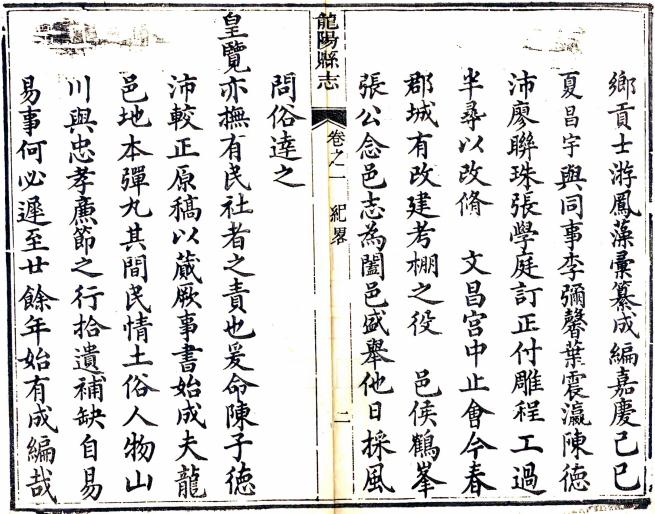 鄉貢士游鳳藻彙纂成編嘉慶己巳
夏昌宇與同事李彌馨葉震瀛陳德
沛廖聯珠張學庭訂正付雕程工過
半尋以改脩　文昌宮中止會今春
郡城有改建考棚之役　邑侯鶴峯
張公念邑志為闔邑盛舉他日採風
龍陽縣志
卷之一　紀畧
二
問俗達之
皇覽亦撫有民社者之責也爰命陳子德
沛較正原稿以蕆厥事書始成夫龍
邑地本彈丸其間民情土俗人物山
川與忠孝廉節之行拾遺補缺自易
易事何必遲至廿餘年始有成編哉